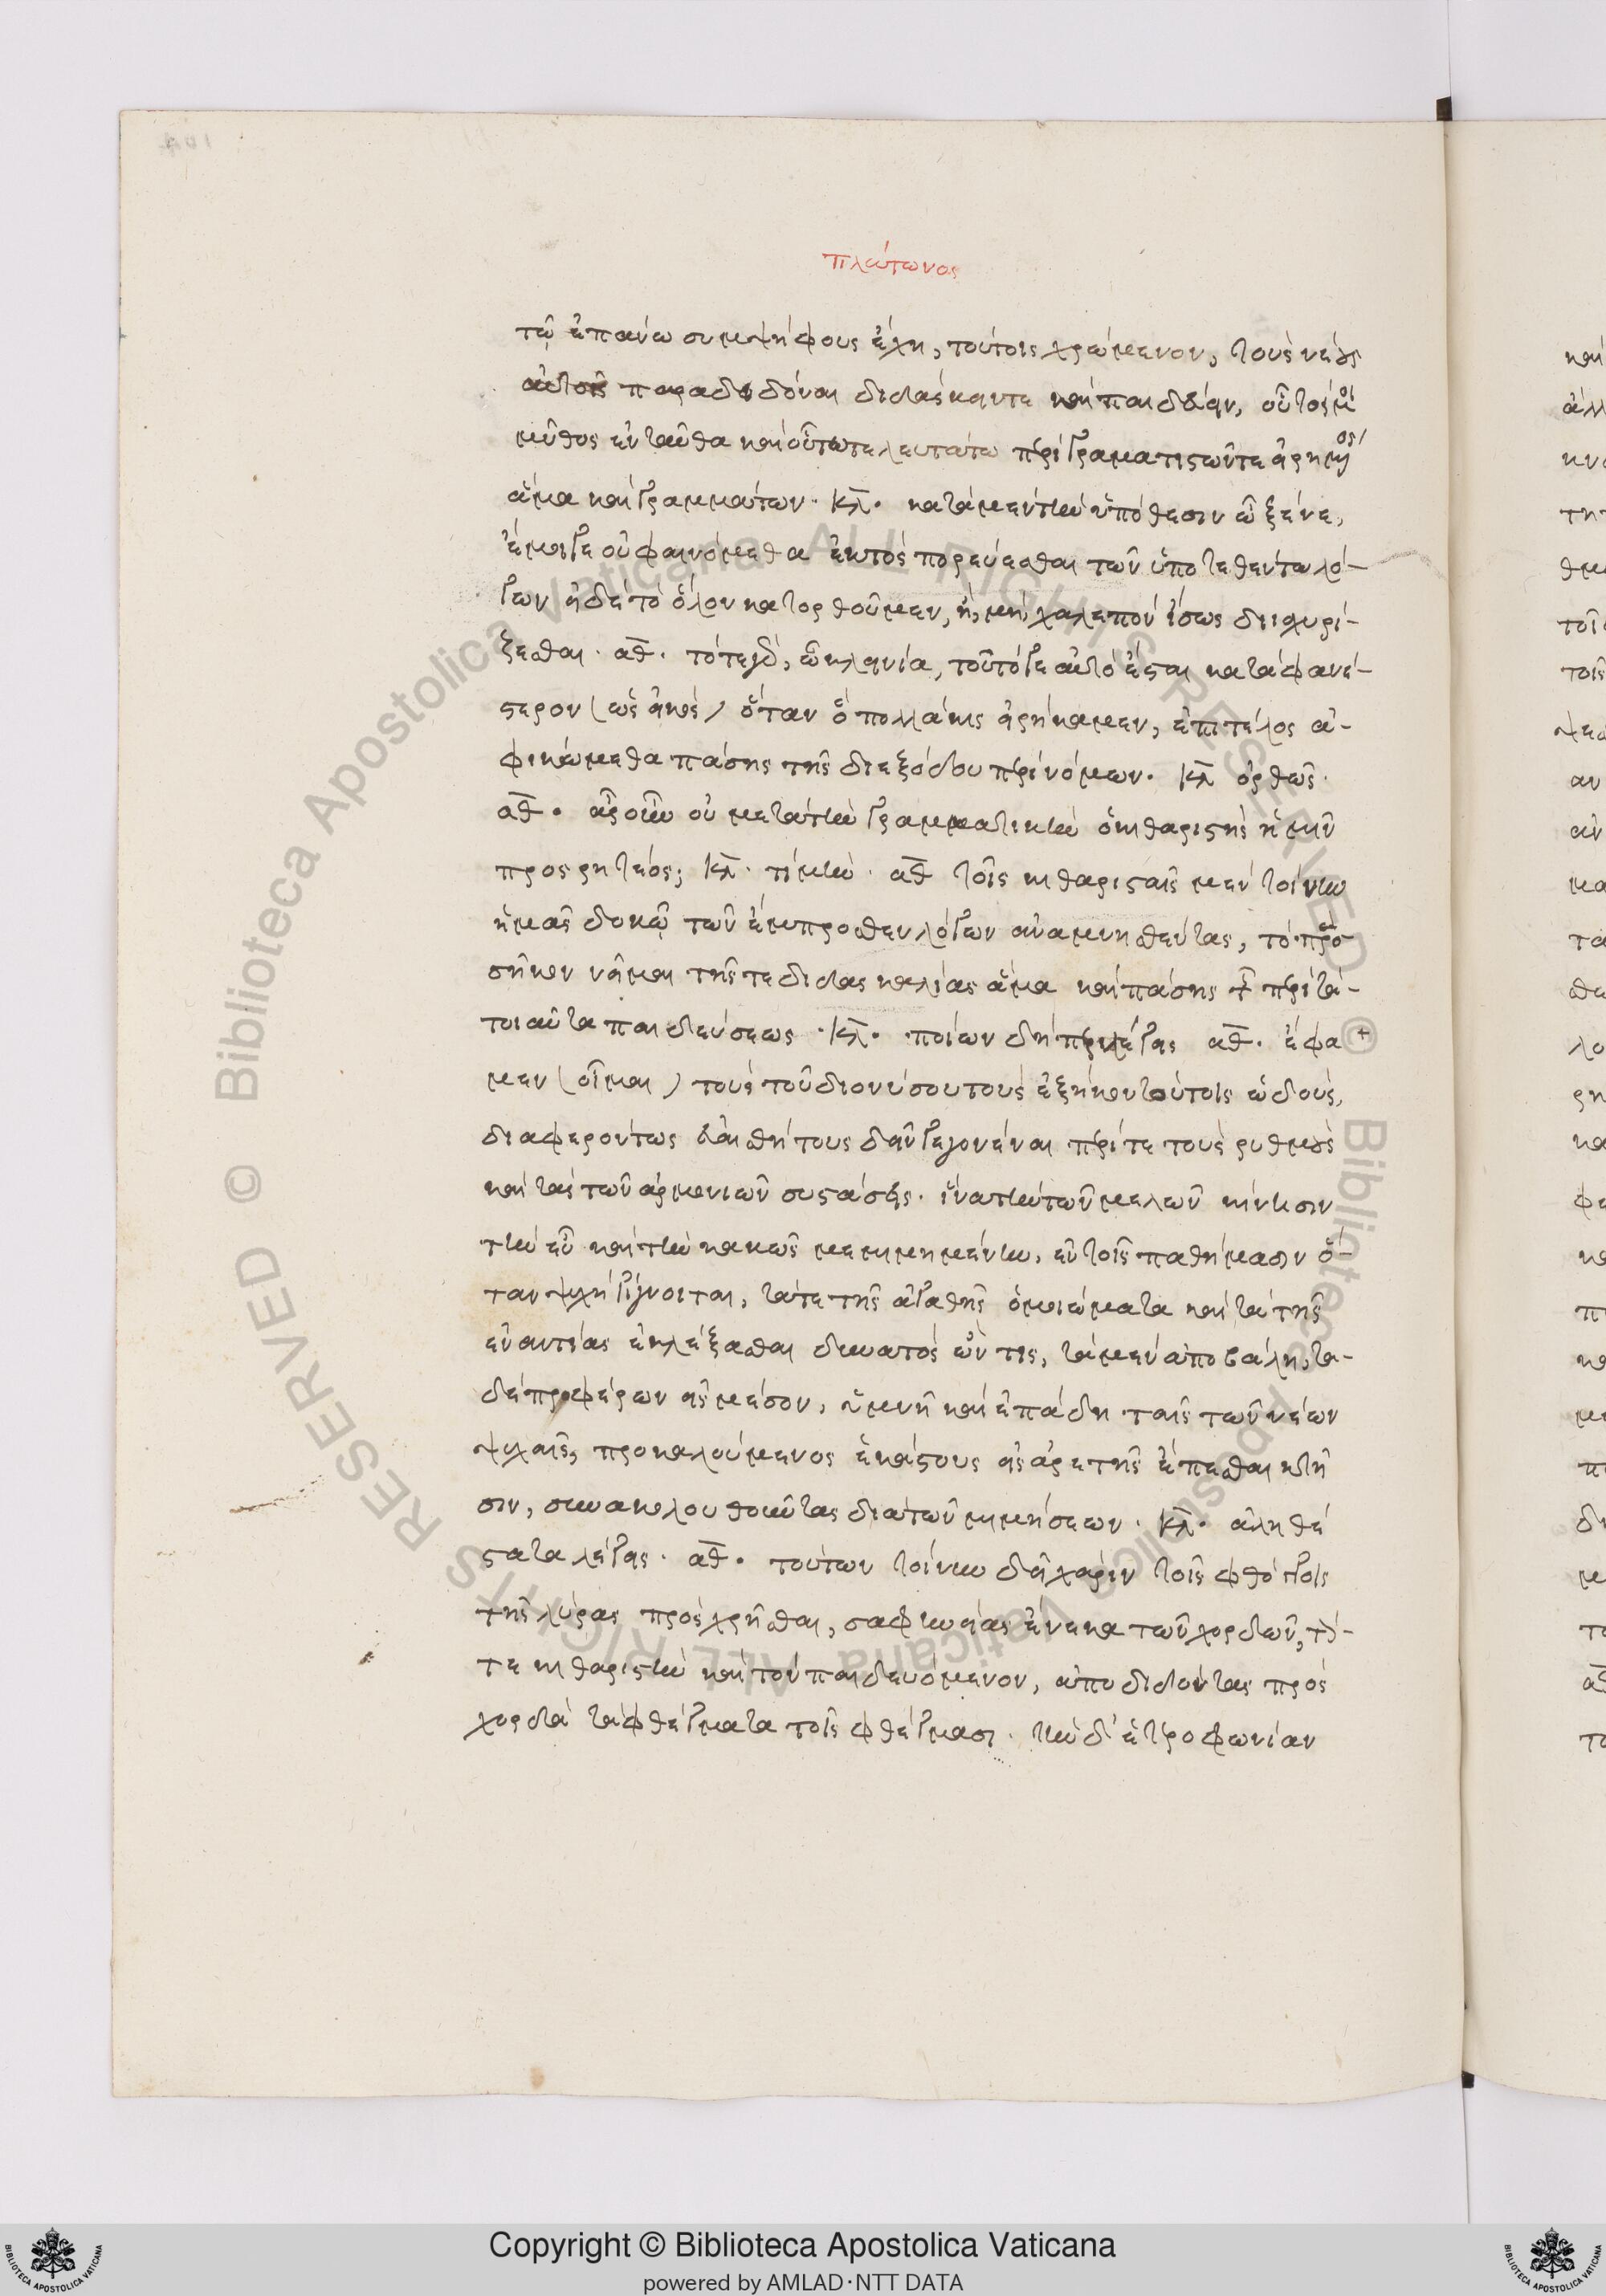 πλάτωνος
τῷ ἐπαίνῳ συμψήφους ἔχη, τούτοις χρώμενον, τοὺς νέους
αὐτοῖς παραδιδόναι διδάσκειν τε καὶ παιδεύειν, οὗτός μοι
μῦθος ἐνταῦθα καὶ οὕτω τελευτάτω περὶ γραματιστῶν τε εἰρημένος
ἅμα καὶ γραμμάτων · κλ · κατὰ μὲν τὴν ὑπόθεσιν ὦ ξένε,
ἔμοιγε οὐ φαινόμεθα ἐκτὸς πορεύεσθαι τῶν ὑποτεθέντων λό-
γων εἰ δὲ τὸ ὅλον κατορθοῦμεν, ἢ μὴ, χαλεπὸν ἴσως διισχυρί-
ζεσθαι · αθ · τότε γὰρ, ὦ κλεινία, τοῦτό γε αὐτὸ ἔσται καταφανέ-
στερον (ὡς εἰκός) ὅταν ὃ πολλάκις εἰρήκαμεν, ἐπὶ τέλος ἀ-
φικώμεθα πάσης τῆς διεξόδου περὶ νόμων · κλ ὀρθῶς ·
αθ · ἆρ οὖν οὐ μετὰ τὴν γραμματικὴν ὁ κιθαριστὴς ἡμῖν
προσρητέος; κλ · τί μήν · αθ τοῖς κιθαρισταῖς μὲν τοίνυν
ἡμᾶς δοκῶ τῶν ἔμπροσθεν λόγων ἀναμνησθέντας, τὸ προσ
σῆκον νεῖμαι τῆς τε διδασκαλίας ἅμα καὶ πάσης τῆς περὶ τὰ-
τοιαῦτα παιδεύσεως · κλ · ποίων δὴ πέρι λέγεις αθ · ἔφα
μεν (οἶμαι) τοὺς τοῦ διονύσου τοὺς ἑξηκοντούτοις ᾠδοὺς,
διαφερόντως εὐαισθήτους δεῖν γεγονέναι περί τε τοὺς ρυθμοὺς
καὶ τὰς τῶν ἁρμονιῶν συστάσεις · ἵνα τὴν τῶν μελῶν κίνησιν
τὴν εὖ καὶ τὴν κακῶς μεμιμημένην, ἐν τοῖς παθήμασιν ὅ-
ταν ψυχὴ γίγνοιται, τά τε τῆς ἀγαθῆς ὁμοιώματα καὶ τὰ τῆς
ἐναντίας ἐκλέξασθαι δυνατὸς ὤν τις, τὰ μὲν ἀποβάλη, τὰ-
δὲ προφέρων εἰς μέσον, ὑμνῆ καὶ ἐπάδη ταῖς τῶν νέων
ψυχαῖς, προκαλούμενος ἑκάστους εἰς ἀρετῆς ἕπεσθαι κτῆ
σιν, συνακολουθοῦντας διὰ τῶν μιμήσεων · κλ · ἀληθέ
στατα λέγεις · αθ · τούτων τοίνυν δεῖ χάριν τοῖς φθόγγοις
τῆς λύρας προσχρῆσθαι, σαφηνείας ἕνεκα τῶν χορδῶν, τόν-
τε κιθαριστὴν καὶ τὸν παιδευόμενον, ἀποδιδόντας πρὸς
χορδὰ τὰ φθέγματα τοῖς φθέγμασι · τὴν δ' ἑτεροφωνίαν
Copyright © Biblioteca Apostolica Vaticana
powered by AMLAD·NTT DATA